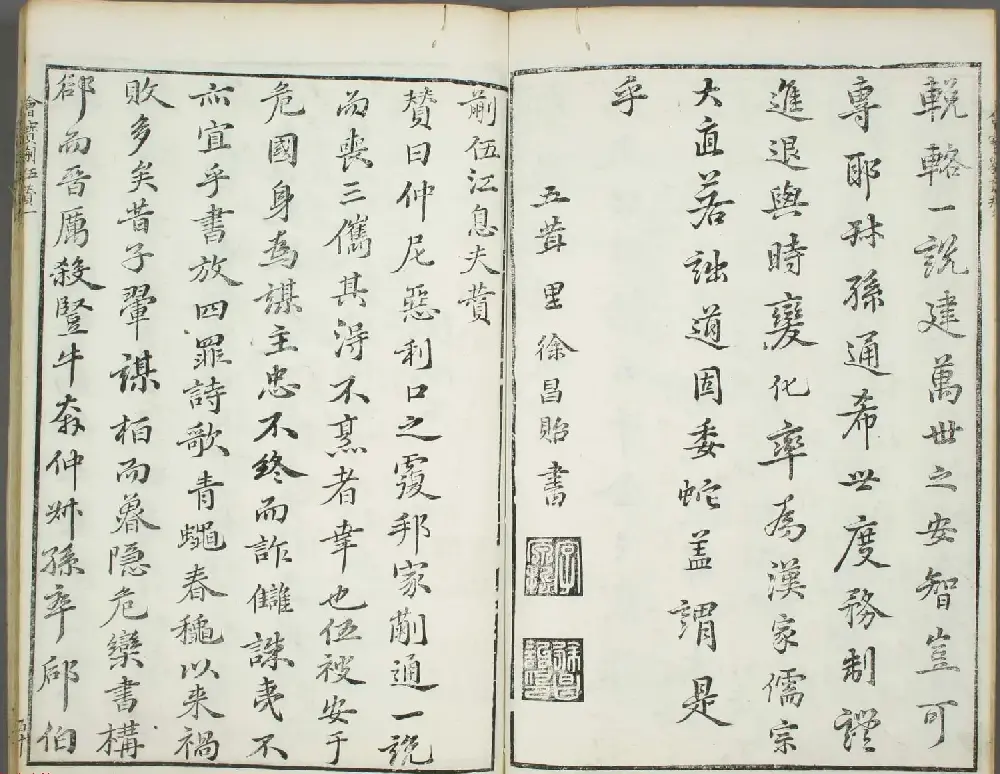 輓輅一說建萬世之安智豈可
專耶叔孫通希世度務制禮
進退與時變化卒為漢家儒宗
大直若詘道固委蛇盖謂是
乎
五茸里徐昌貽書
蒯伍江息夫贊
贊曰仲尼惡利口之覆邦家蒯通一說
而喪三儁其得不烹者幸也伍被安于
危國身為謀主忠不終而詐讎誅夷不
亦宜乎書放四罪詩歌青蠅春穐以来禍
敗多矣昔子翬謀桓而魯隐危欒書構
郤而晋厲殺豎牛奔仲叔孫卒郈伯